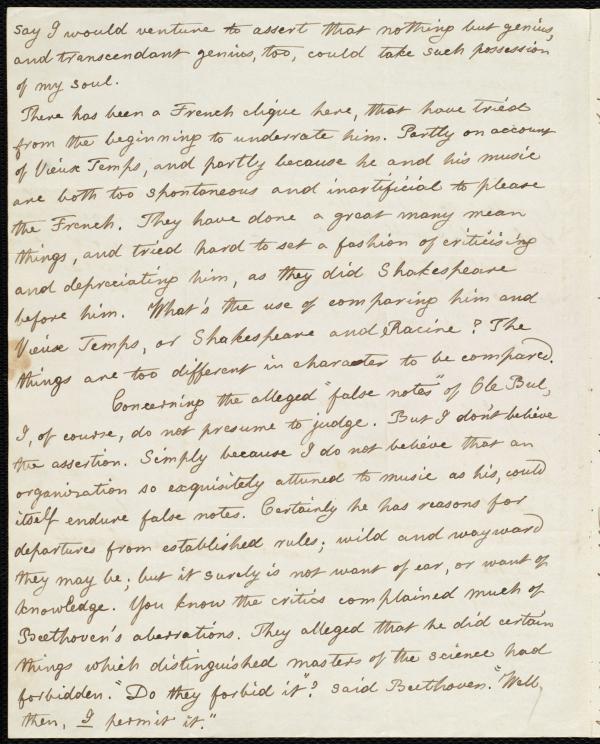 say I would venture to assert that nothing but genius,
and transcendant genius, too, could take such possession
of my soul.
There has been a French clique here, that have tried
from the beginning to underrate him. Partly on account
of Vieux Temps, and partly because he and his music
are both too spontaneous and inartificial to please
the French. They have done a great many mean
things, and tried hard to set a fashion of criticising
and depreciating him, as they did Shakespeare
before him. What's the use of comparing him and
Vieux Temps, or Shakespeare and Racine? The
things are too different in character to be compared.
Concerning the alleged "false notes" of Ole Bul,
I, of course, do not presume to judge. But I don't believe
the assertion. Simply because I do not believe that an
organization so exquisitely attuned to music as his, could
itself endure false notes. Certainly he has reasons for
departures from established rules; wild and wayward
they may be; but it surely is not want of ear, or want of
knowledge. You know the critics complained much of
Beethoven's aberrations. They alleged that he did certain
things which distinguished masters of the science had
forbidden. "Do they forbid it"? said Beethoven. "Well,
then, I permit it."